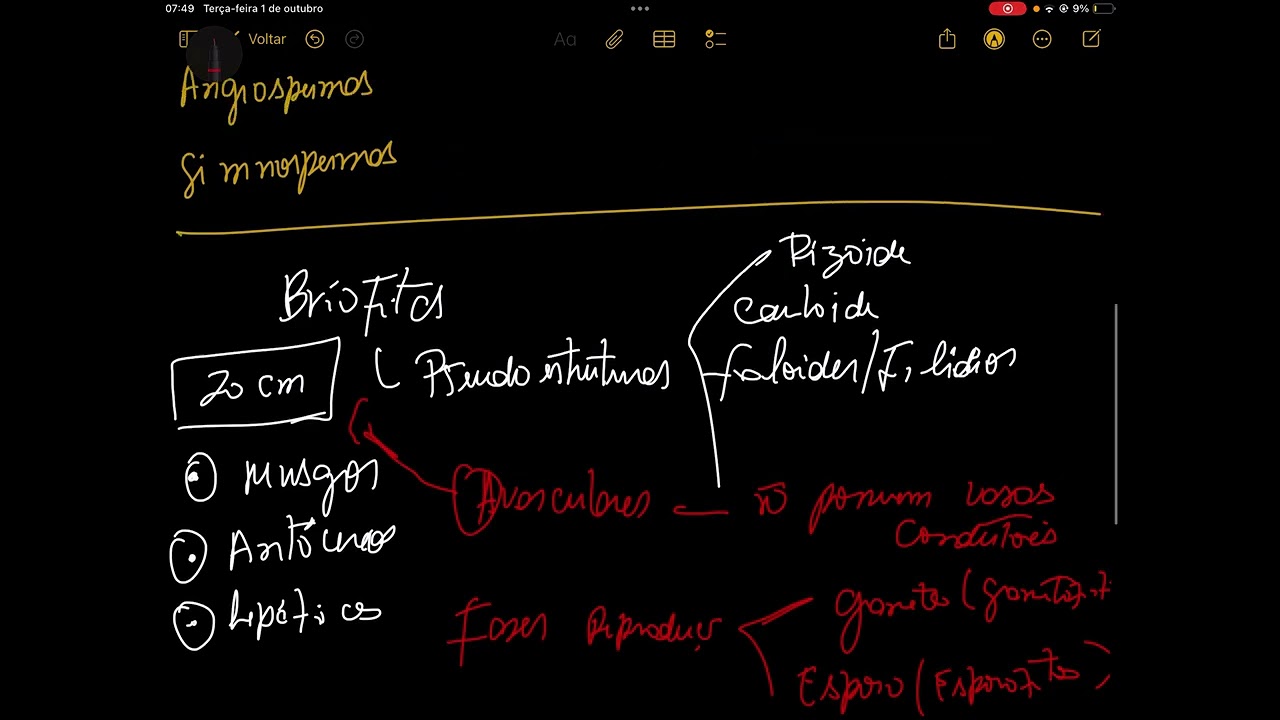 07:49 Terça-feira 1 de outubro 9%
Voltar Aa
Angiospermas
Gimnospermas
Briófitas
Rizoide
Cauloide
20 cm
Pseudo estruturas
faloides/Filidios
musgos
Avasculares — ñ possuem vasos
condutores
Antóceros
Hepáticas
Fases Reproduç
gameta (gametófit
Esporo (Esporofitos)